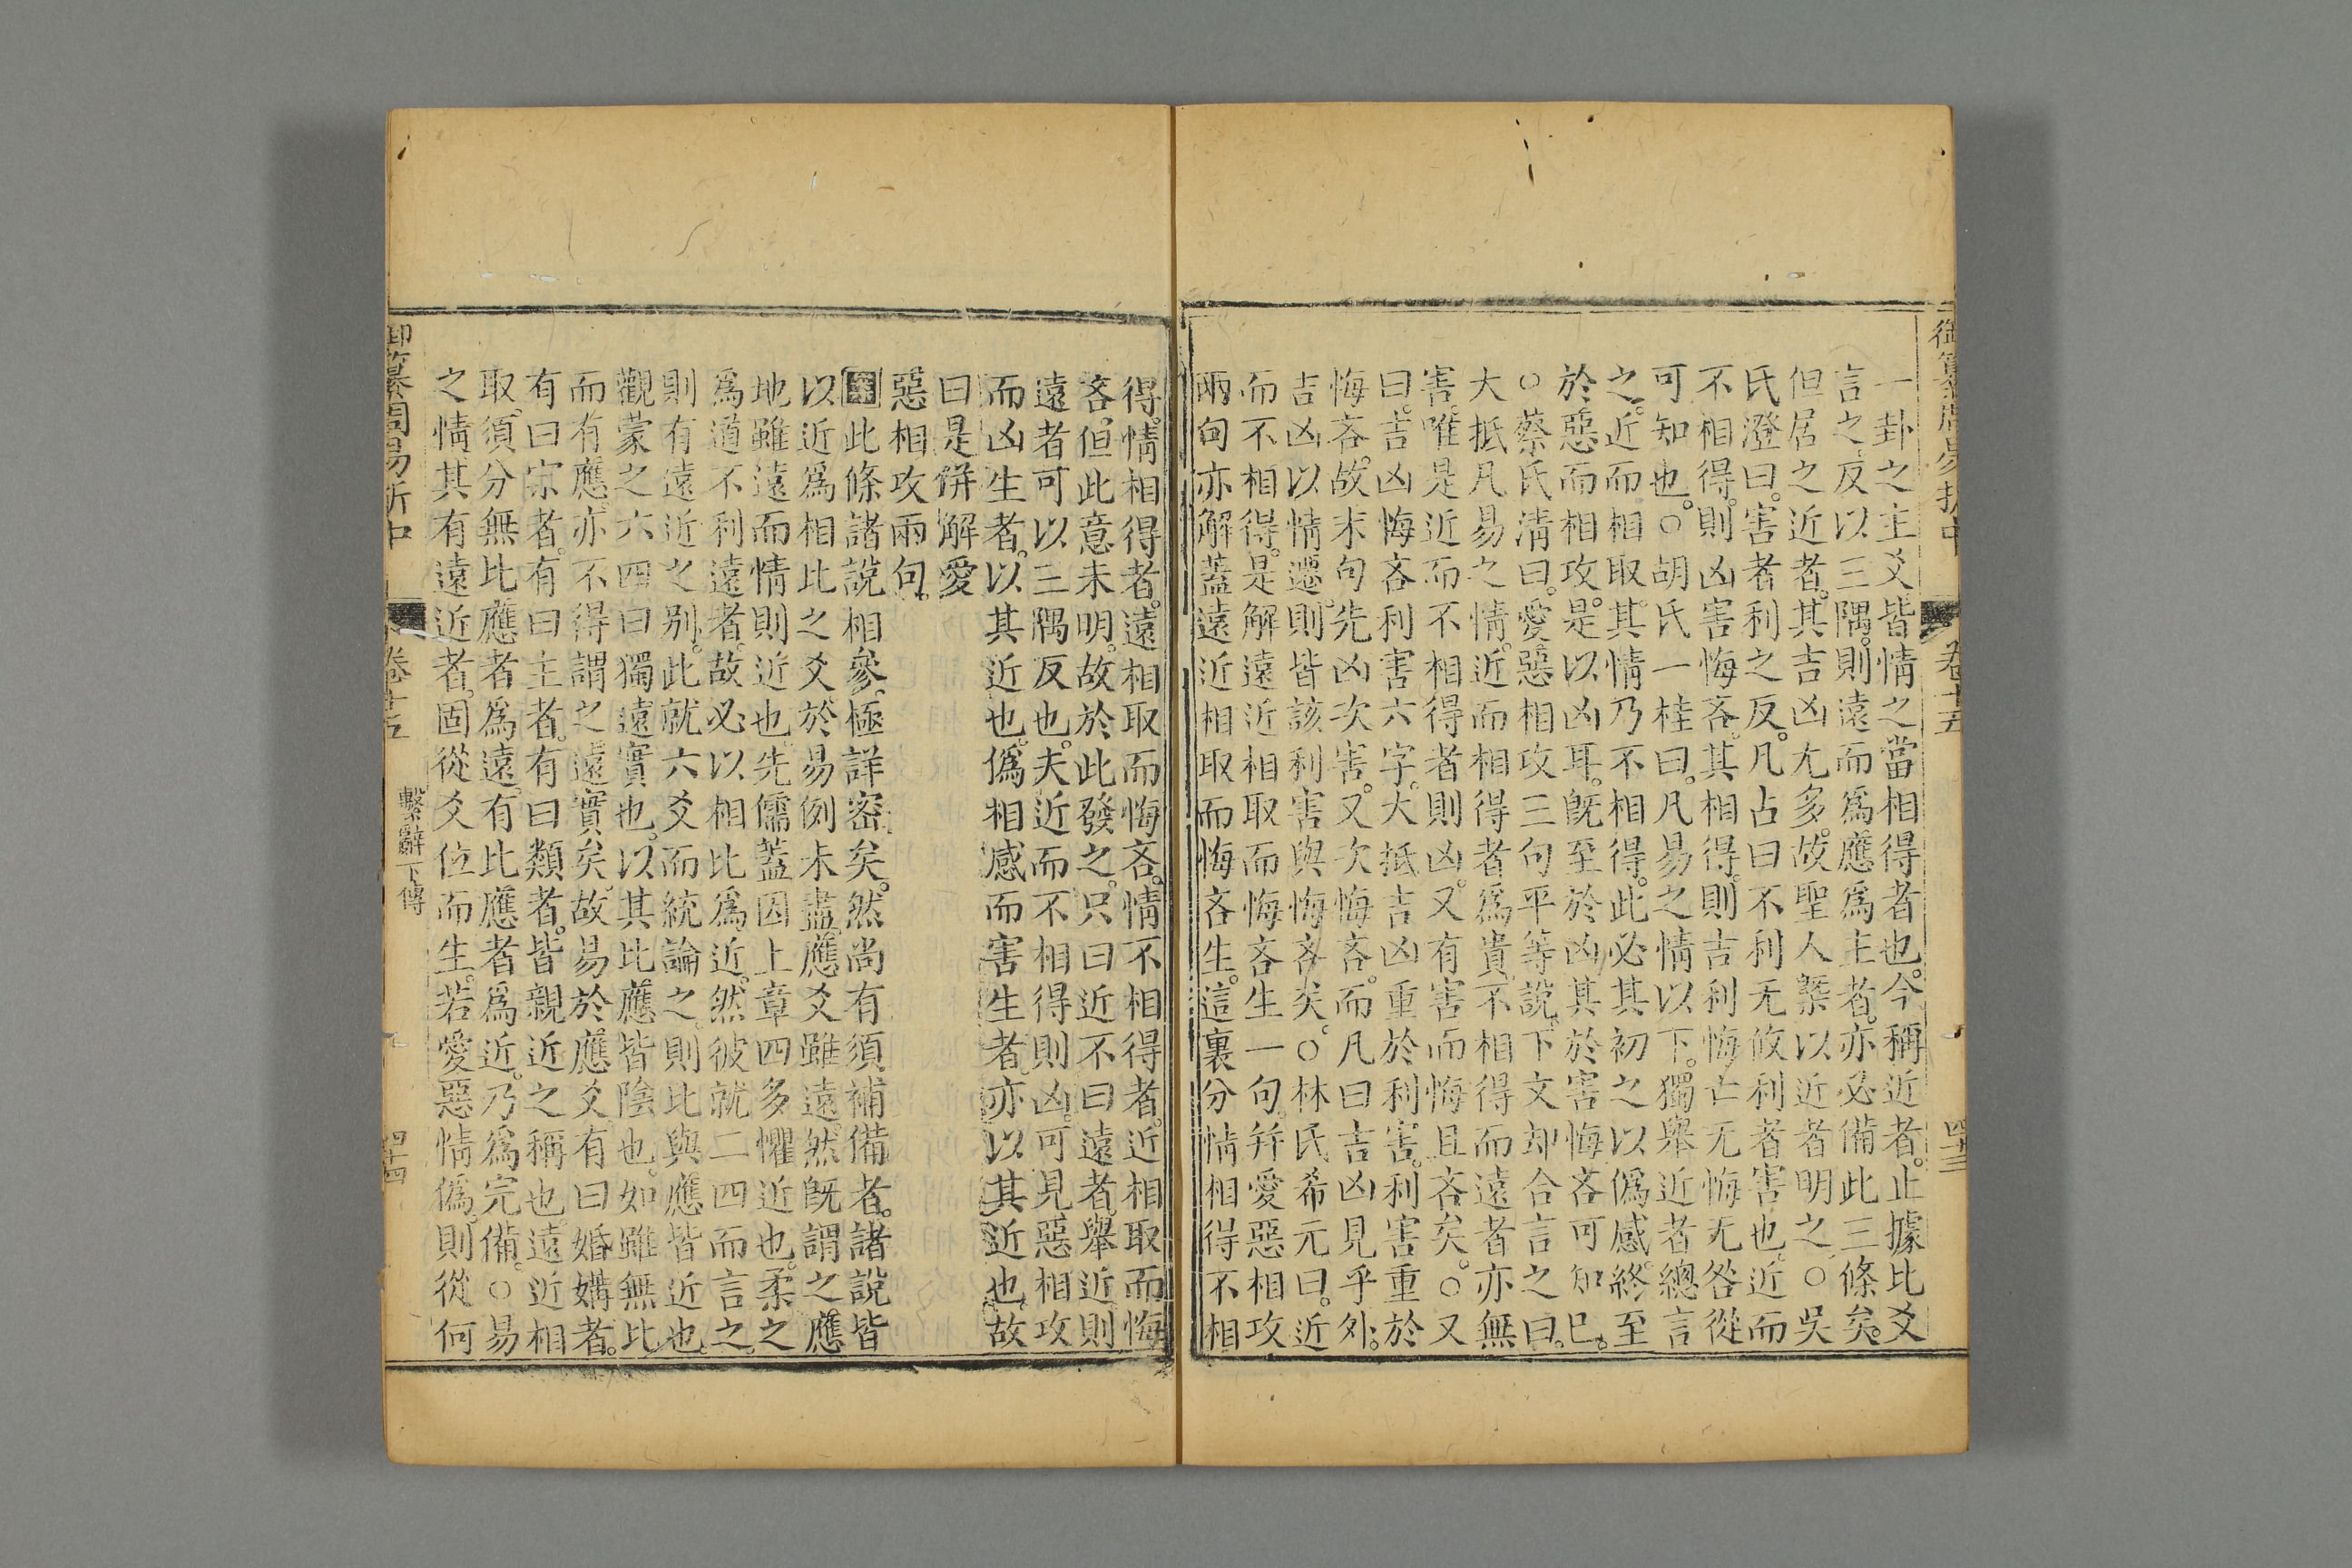 御纂周易折中
卷十五
四十三
一卦之主爻皆情之當相得者也。今稱近者。止據比爻
言之。反以三隅。則遠而爲應爲主者。亦必備此三條矣。
但居之近者。其吉凶尤多。故聖人槩以近者明之。○吳
氏澄曰。害者利之反。凡占曰不利无攸利者害也。近而
不相得。則凶害悔吝。其相得。則吉利悔亡无悔无咎從
可知也。○胡氏一桂曰。凡易之情以下。獨舉近者總言
之。近而相取。其情乃不相得。此必其初之以僞感。終至
於惡而相攻。是以凶耳。旣至於凶。其於害悔吝可知已。
○蔡氏淸曰。愛惡相攻三句平等說。下文却合言之曰。
大抵凡易之情。近而相得者爲貴。不相得而遠者亦無
害。唯是近而不相得者則凶。又有害而悔且吝矣。○又
曰。吉凶悔吝利害六字。大抵吉凶重於利害。利害重於
悔吝。故末句先凶次害。又次悔吝。而凡曰吉凶見乎外。
吉凶以情遷。則皆該利害與悔吝矣。○林氏希元曰。近
而不相得。是解遠近相取而悔吝生一句。幷愛惡相攻
兩句亦解。蓋遠近相取而悔吝生。這裏分情相得不相
得。情相得者。遠相取而悔吝。情不相得者。近相取而悔
吝。但此意未明。故於此發之。只曰近不曰遠者。舉近則
遠者可以三隅反也。夫近而不相得則凶。可見惡相攻
而凶生者。以其近也。僞相感而害生者。亦以其近也。故
曰是倂解愛
惡相攻兩句。
此條諸說相參。極詳密矣。然尚有須補備者。諸說皆
以近爲相比之爻。於易例未盡。應爻雖遠。然旣謂之應
地雖遠而情則近也。先儒蓋因上章四多懼近也。柔之
爲道不利遠者。故必以相比爲近。然彼就二四而言之。
則有遠近之別。此就六爻而統論之。則比與應皆近也。
觀蒙之六四曰獨遠實也。以其比應皆陰也。如雖無比
而有應。亦不得謂之遠實矣。故易於應爻。有曰婚媾者。
有曰宗者。有曰主者。有曰類者。皆親近之稱也。遠近相
取。須分無比應者爲遠。有比應者爲近。乃爲完備。○易
之情其有遠近者。固從爻位而生。若愛惡情僞。則從何
御纂周易折中
卷十五
繫辭下傳
四十四